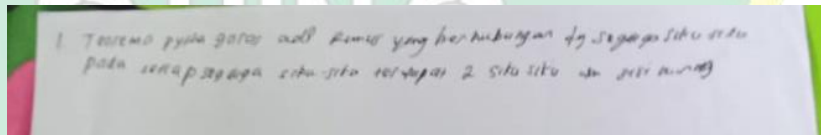 1. Teorema pytha goras adl Rumus yang berhubungan dg segiga siku siku
pada setiap segaga siku-siku terdapat 2 siku siku dan sisi miring